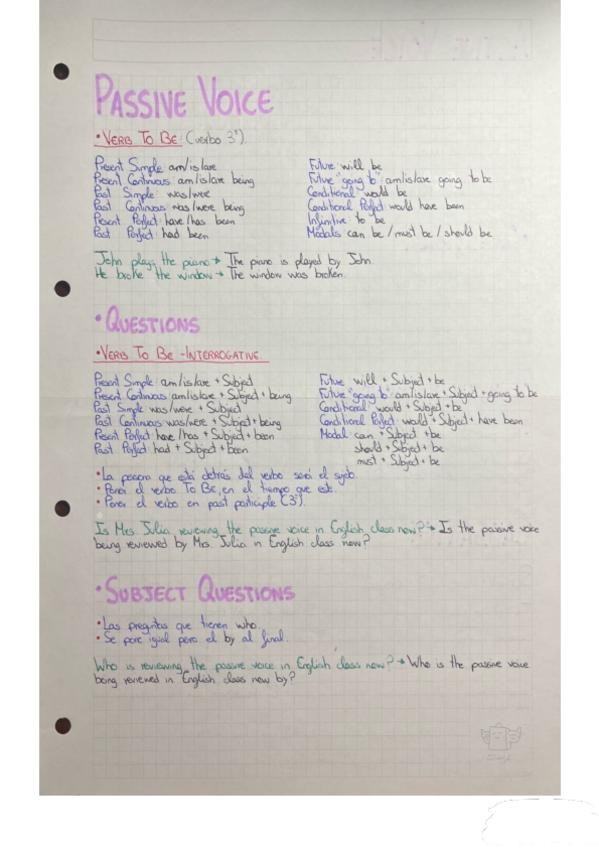 PASSIVE VOICE
• VERB TO BE (verbo 3ª).
Present Simple am/is/are
Present Continuous am/is/are being
Past Simple was/were
Past Continuous was/were being
Present Perfect have/has been
Past Perfect had been
Future will be
Future "going to" am/is/are going to be
Conditional would be
Conditional Perfect would have been
Infinitive to be
Modals can be / must be / should be
John plays the piano → The piano is played by John.
He broke the window → The window was broken.
• QUESTIONS
• VERB TO BE - INTERROGATIVE
Present Simple am/is/are + Subject
Present Continuous am/is/are + Subject + being
Past Simple was/were + Subject
Past Continuous was/were + Subject + being
Present Perfect have/has + Subject + been
Past Perfect had + Subject + been
Future will + Subject + be
Future "going to" am/is/are + Subject + going to be
Conditional would + Subject + be
Conditional Perfect would + Subject + have been
Modal can + Subject + be
should + Subject + be
must + Subject + be
• La persona que está detrás del verbo será el sujeto.
• Poner el verbo To Be, en el tiempo que esté.
• Poner el verbo en past participle (3ª).
Is Mrs. Julia reviewing the passive voice in English class now? → Is the passive voice
being reviewed by Mrs. Julia in English class now?
• SUBJECT QUESTIONS
• Las preguntas que tienen who.
• Se pone igual pero el by al final.
Who is reviewing the passive voice in English class now? → Who is the passive voice
being reviewed in English class now by?